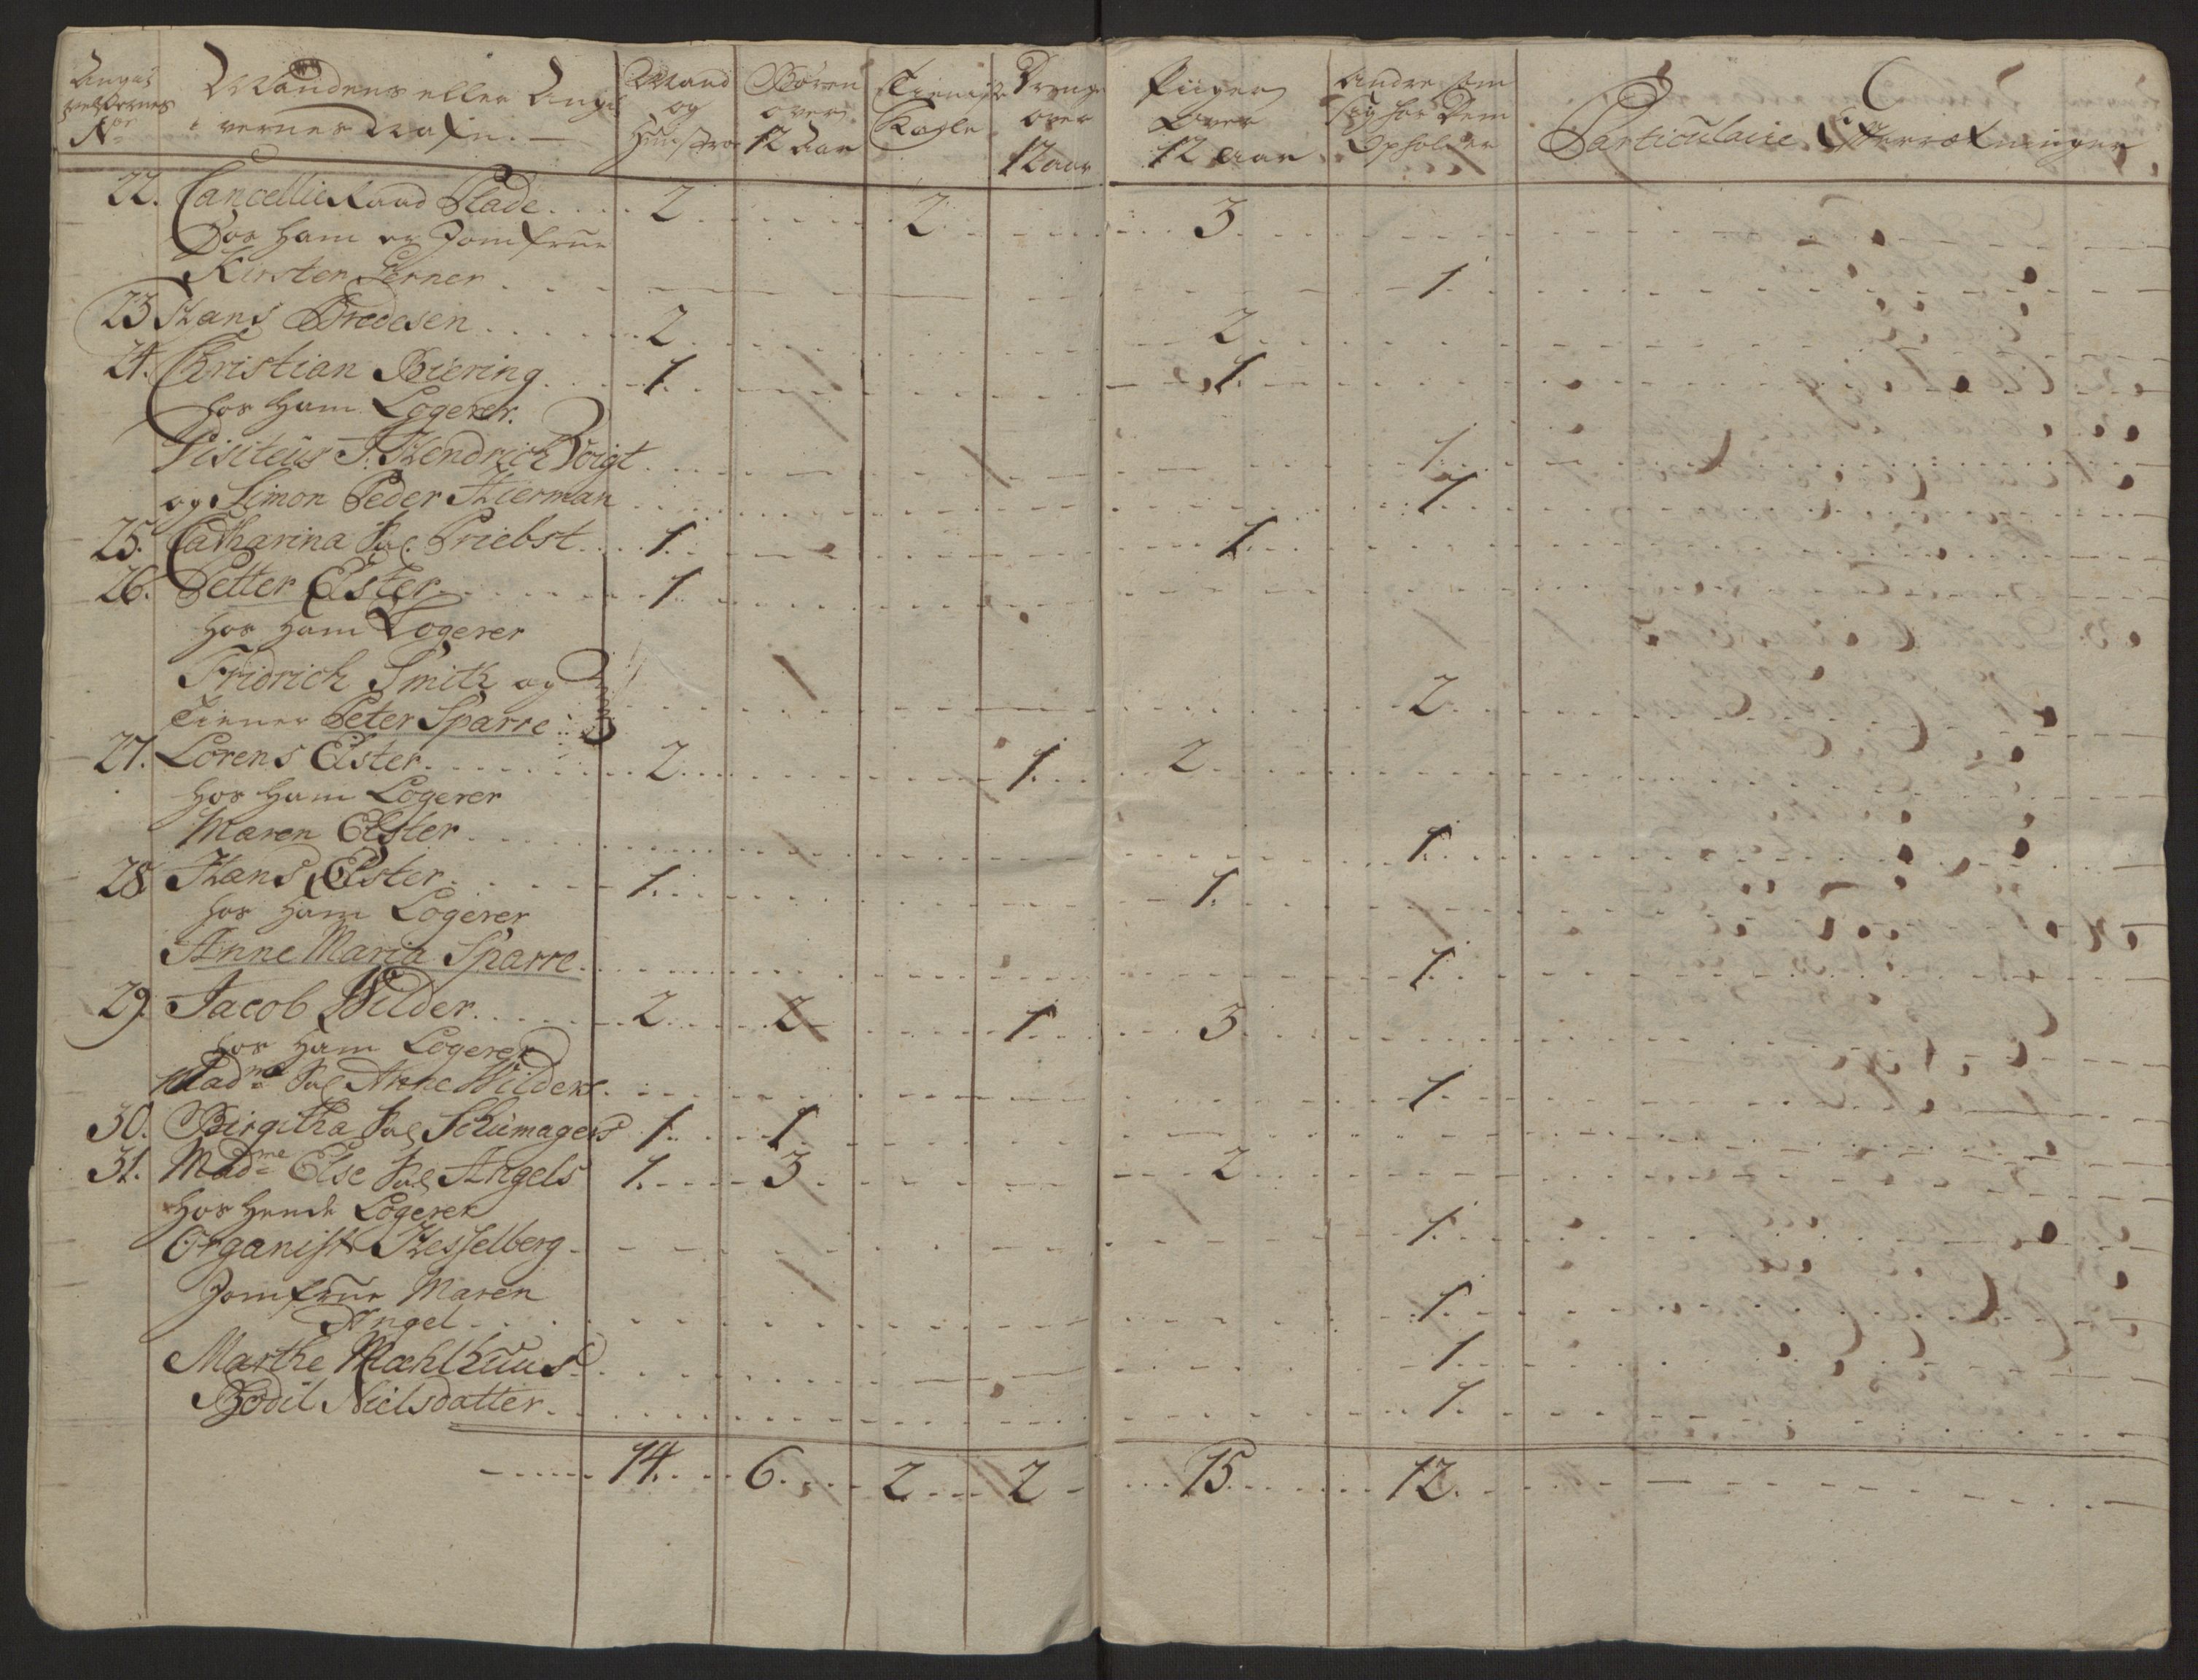 Angivelsernes No
Mandens eller Angivernes Nafn. —
Mand og Hustroe
Børen over 12 Aar
Tieniste Karle
Drenge over 12 aar
Piiger over 12 aar
Andre som sig hos Dem Opholder
Particulaire Efterrætninger
22. Cancellie Raad Plade . . . 2 . . . 2 . . . 3
Hos ham er Jomfrue
Kirsten Perner . . . 1
23 Hans Bredesen . . . 2 . . . 2
24. Christian Biering . . . 1 . . . 1
hos ham Logerer.
Visiteur J. Hendrich Voigt . . . 1
og Simon Peder Hierman . . . 1
25. Catharina Sal. Priebst . . . 1 . . . 1
26. Petter Elster . . . 1
hos ham Logerer
Fridrich Smith og
Tiener Peter Sparre . . . 2
27. Lorens Elster . . . 2 . . . 1 . . . 2
hos ham Logerer
Maren Elster . . . 1
28 Hans Elster . . . 1 . . . 1
hos ham Logerer
Anne Maria Sparre . . . 1
29. Jacob Wilder . . . 2 . . . 2 . . . 1 . . . 3
hos ham Logerer
Madme Sal Anne Wilders . . . 1
30. Birgitha Sal Schumagers 1 . . . 1
31. Madme Else Sal Angels 1 . . . 3 . . . 2
hos hende Logerer
Organist Hesselberg . . . 1
Jomfrue Maren
Angel . . . 1
Marthe Mæhlhuus . . . 1
Bodil Nielsdatter . . . 1
14 . . . 6 . . . 2 . . . 2 . . . 15 . . . 12